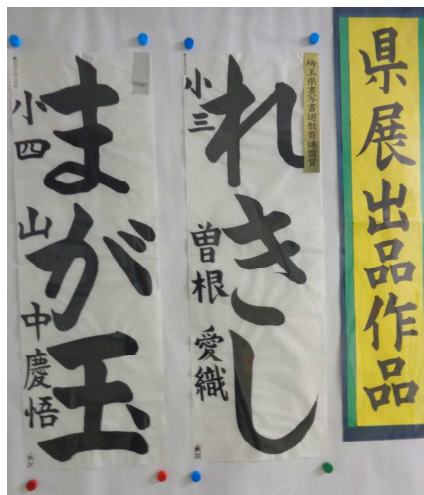 県展出品作品
埼玉県書写書道教育連盟賞
れきし
小三 曽根 愛織
まが玉
小四 山中慶悟